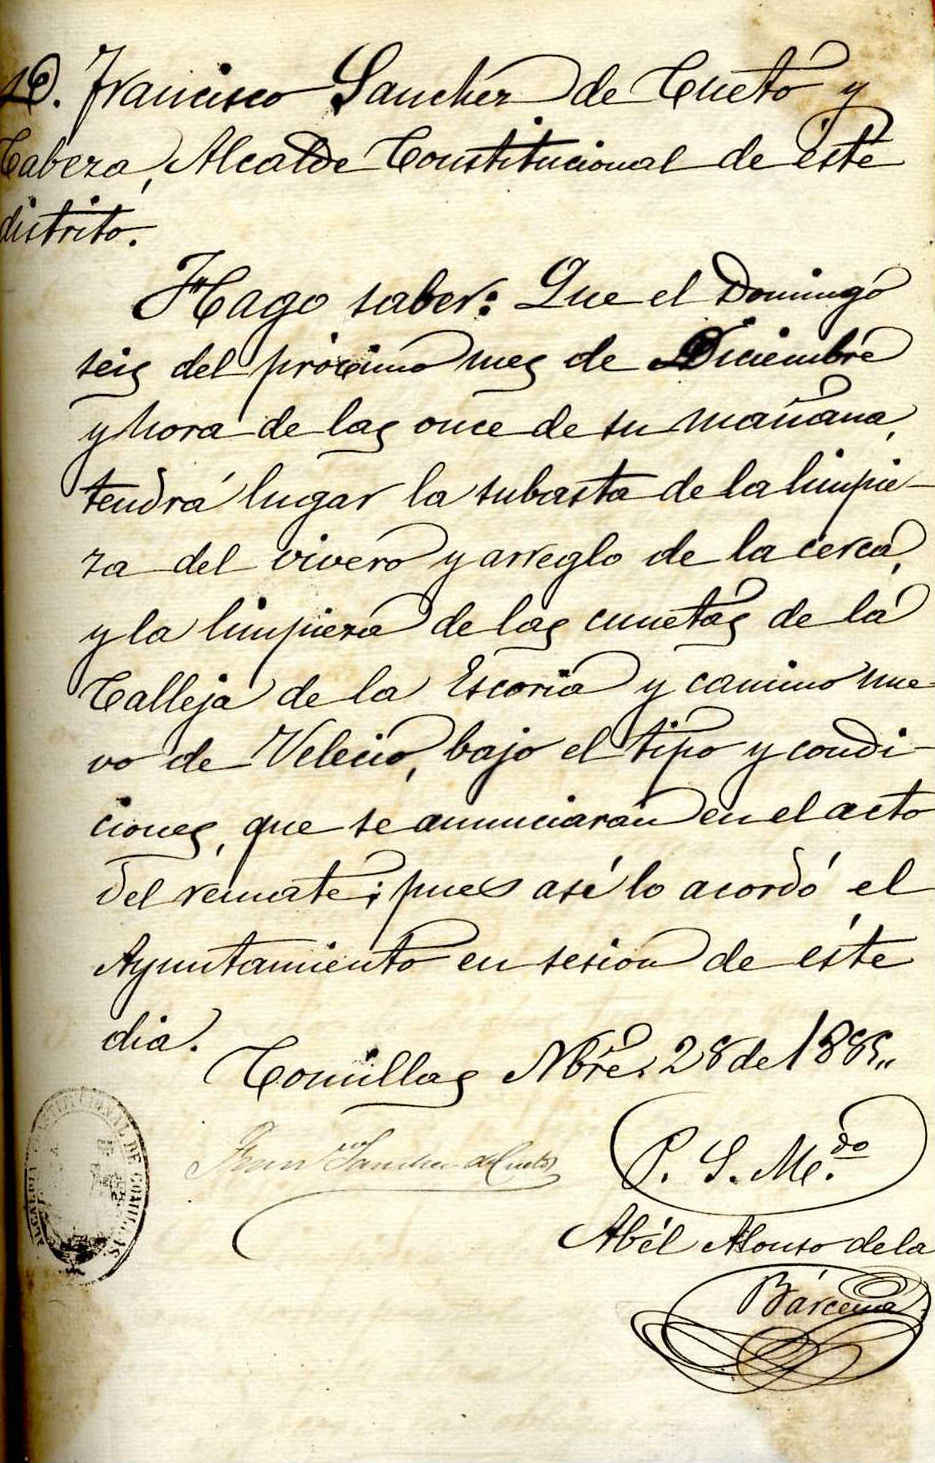 D. Francisco Sanchez de Cueto y
Cabeza, Alcalde Constitucional de éste
distrito.
Hago saber: Que el Domingo
seis del próximo mes de Diciembre
y hora de las once de su mañana,
tendrá lugar la subasta de la limpie-
za del vivero y arreglo de la cerca,
y la limpieza de las cunetas de la
Calleja de la Escoria y camino nue-
vo de Velecio, bajo el tipo y condi-
ciones, que se anunciarán en el acto
del remate; pues asi lo acordó el
Ayuntamiento en sesion de éste
dia.
Comillas Nbre. 28 de 1885„
Fran.co Sanchez de Cueto
P. S. M.do
Abél Alonso de la
Bárcena
ALCALDIA CONSTITUCIONAL DE COMILLAS